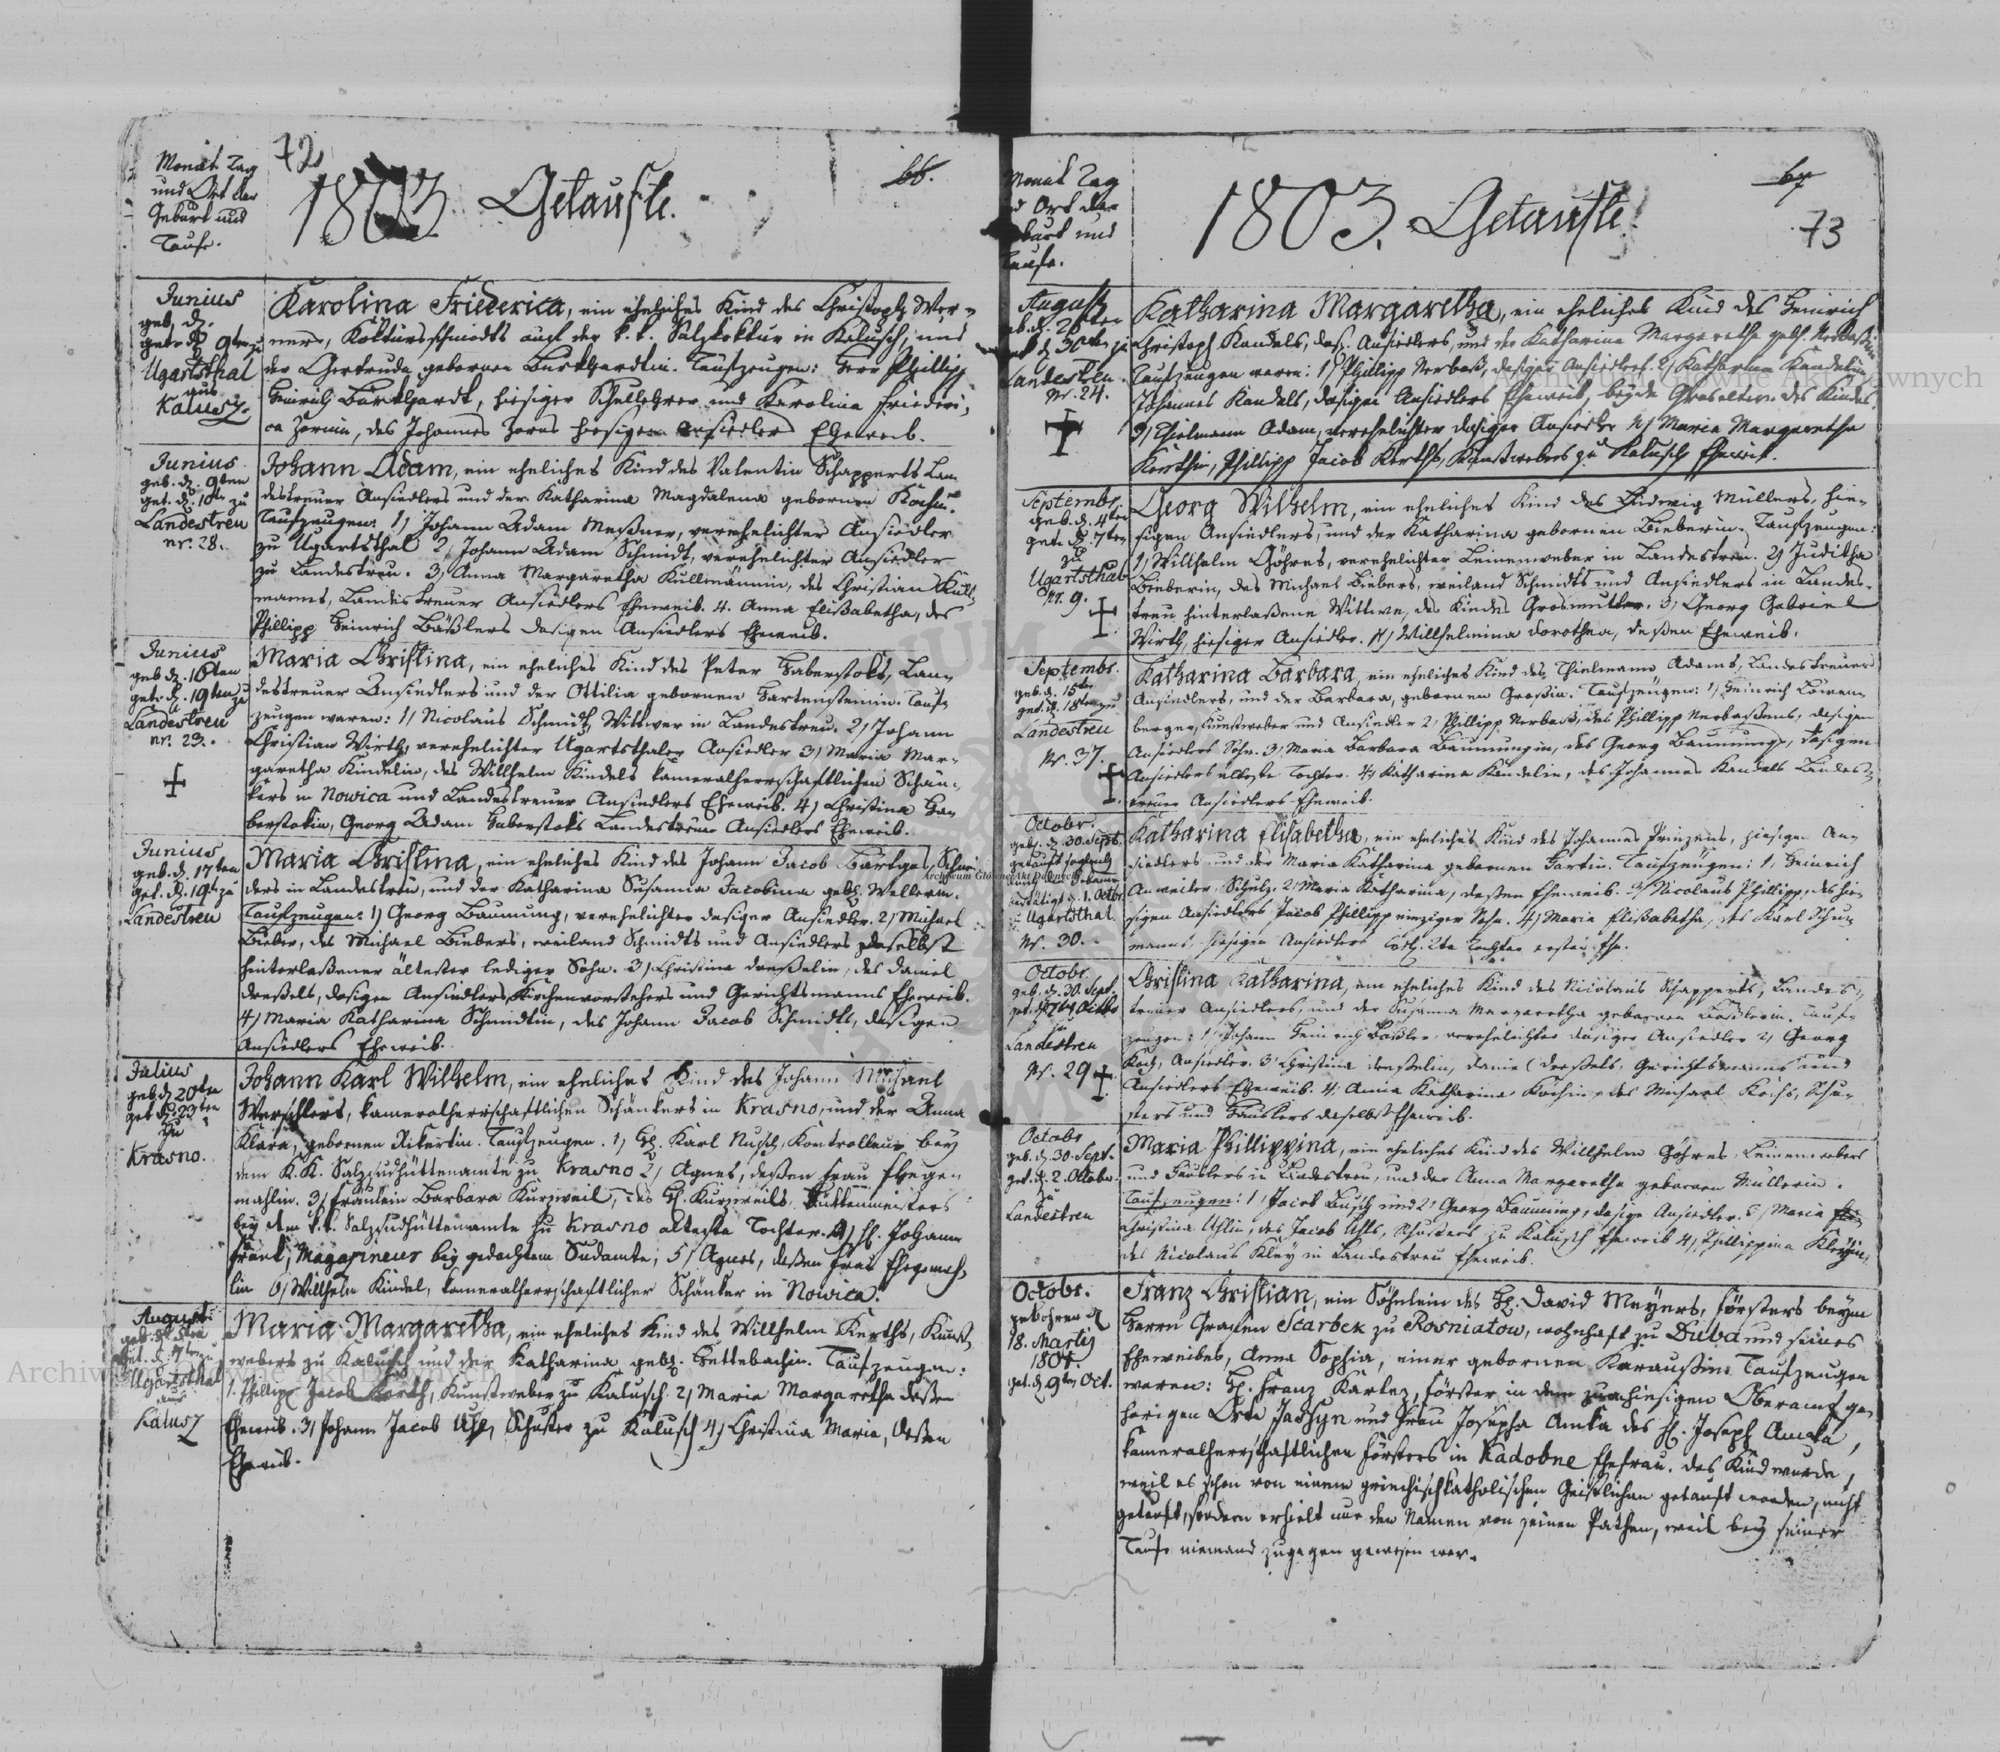 72
Monat Tag
und Ort der
Geburt und
Taufe.
1803. Getaufte.
66.
Junius
geb. d.
get. d. 9ten zu
Ugartsthal
aus
Kalusz.
Karolina Friederica, ein eheliches Kind des Christoph Wer-
ners, schmiedts auf der k. k. Salzkoktur in Kalusch, und
der Gertruda gebornen Burkhardtin. Taufzeugen: Herr Phillipp
Heinrich Burkhardt, hiesiger Schullehrer und Karolina Friederi-
ca Zornin, des Johannes Zorns hiesigen Ansiedlers Eheweib.
Junius.
geb. d. 9ten
get. d. 10ten zu
Landestreu
nr. 28.
Johann Adam, ein eheliches Kind des Valentin Schapperts Lan-
destreuer Ansiedlers und der Katharina Magdalena gebornen Kochin.
Taufzeugen: 1) Johann Adam Meßner, verehelichter Ansiedler
zu Ugartsthal 2) Johann Adam Schmidt, verehelichter Ansiedler
zu Landestreu. 3) Anna Margaretha Kullmännin, des Christian Kull-
manns, Landestreuer Ansiedlers Eheweib. 4. Anna Elisabetha, des
Phillipp Heinrich Bäßlers dasigen Ansiedlers Eheweib.
Junius
geb. d. 16ten
get. d. 19ten zu
Landestreu
nr. 23.
Maria Christina, ein eheliches Kind des Peter Haberstoks, Lan-
destreuer Ansiedlers und der Ottilia gebornen Hartensteinin. Tauf-
zeugen waren: 1) Nicolaus Schmidt, Wittwer in Landestreu. 2) Johann
Christian Wirth, verehelichter Ugartsthaler Ansiedler 3) Maria Mar-
garetha Kindelin, des Willhelm Kindels kameralherrschaftlichen Schän-
kers in Nowica und Landestreuer Ansiedlers Eheweib. 4) Christina Ha-
berstokin, Georg Adam Haberstoks Landestreuer Ansiedlers Eheweib.
Junius
geb. d. 17ten
get. d. 19ten zu
Landestreu
Maria Christina, ein eheliches Kind des Johann Jacob Schnei-
ders in Landestreu, und der Katharina Susanna Jacobina geb. Wellerin.
Taufzeugen: 1) Georg Baumung, verehelichter dasiger Ansiedler. 2) Michael
Bieber, des Michael Biebers, weiland Schmidts und Ansiedlers daselbst
hinterlaßener ältester lediger Sohn. 3) Christina Dreßelin, des Daniel
Dreßels, dasigen Ansiedlers, Kirchenvorstehers und Gerichtsmanns Eheweib.
4) Maria Katharina Schmidtin, des Johann Jacob Schmidts, dasigen
Ansiedlers Eheweib.
Julius
geb. d. 20ten
get. d. 23ten
zu
Krasno.
Johann Karl Wilhelm, ein eheliches Kind des Johann Michael
kameralherrschaftlichen Schänkers in Krasno, und der Anna
Klara, gebornen Rikertin. Taufzeugen. 1) H. Karl Kontrolleur bey
dem K. K. Salzsudhüttenamte zu Krasno 2) Agnes, deßen Frau Ehege-
mahlin. 3) Fräulein Barbara Kurzweil, des H. Kurzweils Hüttenmeisters
bey dem k. k. Salzsudhüttenamte zu Krasno älteste Tochter. 4) H. Johann
Frank, Magazineur bey gedachtem Sudamte; 5) Agnes, deßen Frau Ehegemah-
lin 6) Willhelm Kindel, kameralherrschaftlicher Schänker in Nowica.
August.
geb. d. 5ten
get. d. 7ten zu
Ugartsthal
aus
Kalusz
Maria Margaretha, ein eheliches Kind des Willhelm Kerths, Kunst-
webers zu Kalusch und der Katharina geb. Hettebachin. Taufzeugen:
1. Phillipp Jacob Kerth, Kunstweber zu Kalusch. 2) Maria Margaretha deßen
Eheweib. 3) Johann Jacob Uhl, Schuster zu Kalusch 4) Christina Maria, deßen
Eheweib.
Monat Tag
d Ort der
burt und
Taufe.
1803. Getaufte.
67
73
August
geb. d. 28ten
get. d. 30ten zu
Landestreu.
Nr. 24.
Katharina Margaretha, ein eheliches Kind des Heinrich
Christoph Kandels, das. Ansiedlers, und der Katharina Margaretha geb. Nerbaßin
Taufzeugen waren: 1) Phillipp Nerbaß, dasiger Ansiedler. 2) Katharina Kandelin,
Johannes Kandels, dasigen Ansiedlers Eheweib, beyde Groseltern des Kindes.
3) Thielmann Adam, verehelichter dasiger Ansiedler 4) Maria Margaretha
Kerthin, Phillipp Jacob Kerths, Kunstwebers zu Kalusch Eheweib.
Septembr.
geb. d. 4ten
get. d. 7ten
zu
Ugartsthal
Nr. 9.
Georg Wilhelm, ein eheliches Kind des Ludwig Müllers, hie-
sigen Ansiedlers, und der Katharina gebornen Bieberin. Taufzeugen:
1) Willhelm Göhres, verehelichter Leinenweber in Landestreu. 2) Juditha
Bieberin, des Michael Biebers, weiland Schmidts und Ansiedlers in Landes-
treu hinterlaßene Wittwe, des Kindes Grosmutter. 3) Georg Gabriel
Wirth, hiesiger Ansiedler. 4) Willhelmina Dorothea, deßen Eheweib.
Septembr.
geb. d. 15ten
get. d. 18ten zu
Landestreu
Nr. 37.
Katharina Barbara, ein eheliches Kind des Thielmann Adams, Landestreuer
Ansiedlers, und der Barbara, gebornen Großin. Taufzeugen: 1) Heinrich Löwen-
berger, Kunstweber und Ansiedler 2) Phillipp Nerbaß, des Phillipp Nerbaßens, dasigen
Ansiedlers Sohn. 3) Maria Barbara Baumungin, des Georg Baumungs, dasigen
Ansiedlers älteste Tochter. 4) Katharina Kandelin, des Johannes Kandels Landes-
treuer Ansiedlers Eheweib.
Octobr.
geb. d. 30. Sept.
getauft sogleich
durch den
bestätigt d. 1. Octbr.
zu Ugartsthal.
Nr. 30.
Katharina Elisabetha, ein eheliches Kind des Johannes Prinzens, hiesigen An-
siedlers und der Maria Katharina gebornen Hartin. Taufzeugen: 1. Heinrich
Anweiler, Schulz. 2. Maria Katharina, deßen Eheweib. 3) Nicolaus Phillipp, des hie-
sigen Ansiedlers Jacob Phillipp einziger Sohn. 4) Maria Elisabetha, des Karl Schu-
manns, hiesigen Ansiedlers 2te Tochter erster Ehe.
Octobr.
geb. d. 30. Sept.
get. d. Octbr
zu
Landestreu
Nr. 29
Christina Katharina, ein eheliches Kind des Nicolaus Schapperts, Landes-
treuer Ansiedlers, und der Susanna Margaretha gebornen Bäßlerin. Tauf-
zeugen: 1) Johann Heinrich Bäßler, verehelichter dasiger Ansiedler 2) Georg
Koch, Ansiedler. 3. Christina Dreßelin, Daniel Dreßels, Gerichtsmanns und
Ansiedlers Eheweib. 4. Anna Katharina Kochin, des Michael Kochs, Schu-
sters und Häuslers daselbst Eheweib.
Octobr
geb. d. 30 Sept.
get. d. 2. Octobr.
zu
Landestreu
Maria Phillippina, ein eheliches Kind des Willhelm Göhres, Leinenwebers
und Häuslers in Landestreu, und der Anna Margaretha gebornen Müllerin.
Taufzeugen: 1) Jacob Busch und 2) Georg Baumung, dasige Ansiedler. 3) Maria
Christina Uhlin, des Jacob Uhls, Schusters zu Kalusch Eheweib 4) Phillippina Kleyin,
des Nicolaus Kley in Landestreu Eheweib.
Octobr.
gebohren d.
18. Martij
1801.
get. d. 9ten Oct.
Franz Christian, ein Söhnlein des H. David Meyers, Försters beym
Herrn Grafen Scarbek zu Rosniatow, wohnhaft zu Duba und seines
Eheweibes, Anna Sophia, einer gebornen Karaußin. Taufzeugen
waren: H. Franz Karlez, Förster in dem zum hiesigen Oberamt ge-
hörigen Orte Jassyn und Frau Josepha Amta des H. Joseph Amta,
kameralherrschaftlichen Försters in Kadobne Ehefrau. Das Kind wurde,
weil es schon von einem griechischkatholischen Geistlichen getauft worden, nicht
getauft, sondern erhielt nur den Namen von seinen Pathen, weil bey seiner
Taufe niemand zugegen gewesen war.
Archiwum Główne Akt Dawnych
Archiwum Główne Akt Dawnych
Archiwum Główne Akt Dawnych